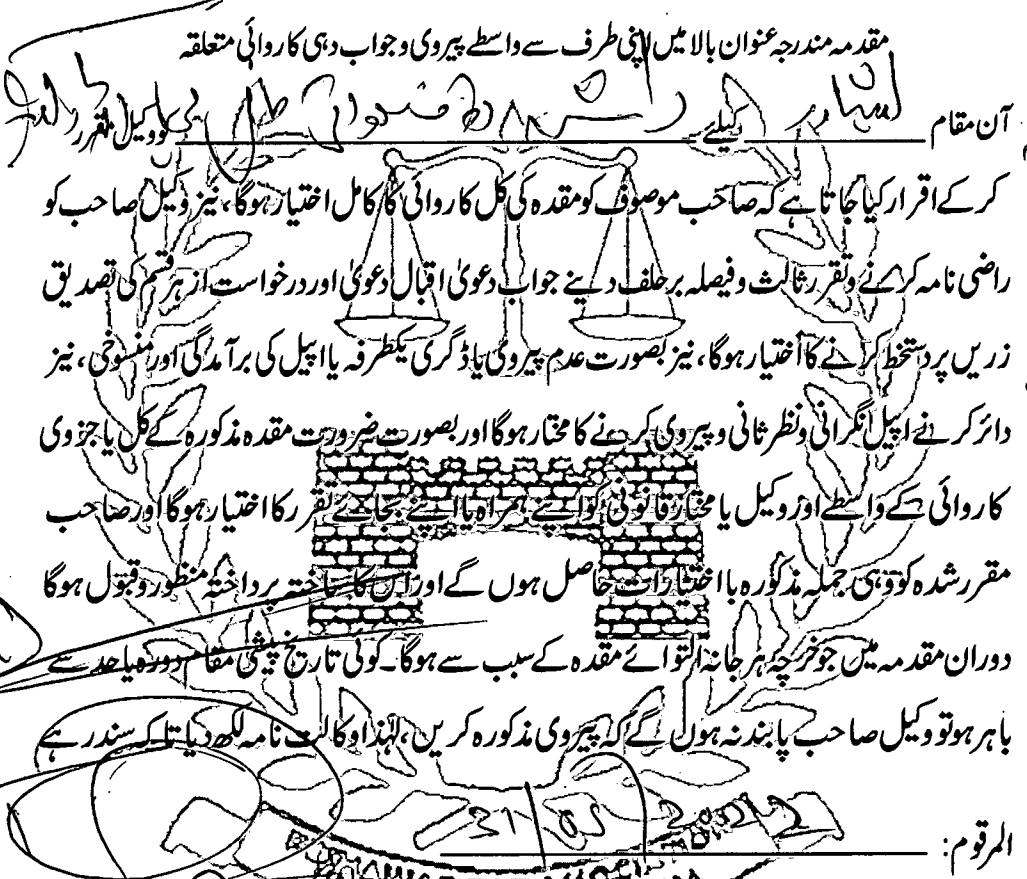 مقدمہ مندرجہ عنوان بالا میں اپنی طرف سے واسطے پیروی و جواب دہی کاروائی متعلقہ
آن مقام پشاور کیلئے کو وکیل مقرر
کر کے اقرار کیا جاتا ہے کہ صاحب موصوف کو مقدہ کی کل کاروائی کا کامل اختیار ہوگا، نیز وکیل صاحب کو
راضی نامہ کرنے و تقرر ثالث و فیصلہ بر حلف دینے جواب دعویٰ اقبال دعویٰ اور درخواست از ہر قسم کی تصدیق
زریں پر دستخط کرنے کا اختیار ہوگا، نیز بصورت عدم پیروی یا ڈگری یکطرفہ یا اپیل کی برآمدگی اور منسوخی، نیز
دائر کرنے اپیل نگرانی و نظر ثانی و پیروی کرنے کا مختار ہوگا اور بصورت ضرورت مقدہ مذکورہ کے کل یا جزوی
کاروائی کے واسطے اور وکیل یا مختار قانونی کو اپنے ہمراہ یا اپنے بجائے تقرر کا اختیار ہوگا اور صاحب
مقرر شدہ کو وہی جملہ مذکورہ با اختیارات حاصل ہوں گے اور اس کا ساختہ پرداختہ منظور و قبول ہوگا
دوران مقدمہ میں جو خرچہ ہرجانہ التوائے مقدہ کے سبب سے ہوگا۔ کوئی تاریخ پیشی مقام دورہ یا حد سے
باہر ہو تو وکیل صاحب پابند نہ ہوں گے کہ پیروی مذکورہ کریں، لہٰذا وکالت نامہ لکھ دیا تاکہ سند رہے
المرقوم: